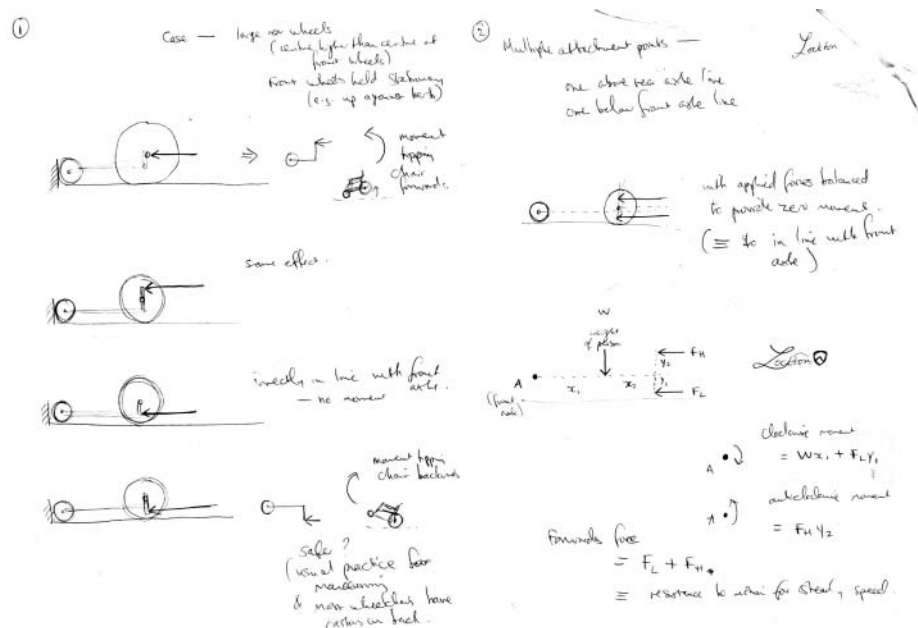 ①
Case — large rear wheels
(centre higher than centre of
front wheels)
Front wheels held stationary
(e.g. up against kerb)
⇒
moment
tipping
chair
forwards.
same effect.
directly in line with front
axle.
— no moment
moment tipping
chair backwards
safer?
(usual practice for
manoeuvring
& most wheelchairs have
castors on back.
②
Multiple attachment points —
Lockton
one above rear axle line
one below front axle line
with applied forces balanced
to provide zero moment.
(≡ to in line with front
axle)
W
weight
of person
A
(front
axle)
x₁
x₂
y₂
y₁
F_H
F_L
Lockton
clockwise moment
A
= Wx₁ + F_L y₁
anticlockwise moment
A
= F_H y₂
Forwards force
= F_L + F_H.
≡ resistance to motion for steady speed.